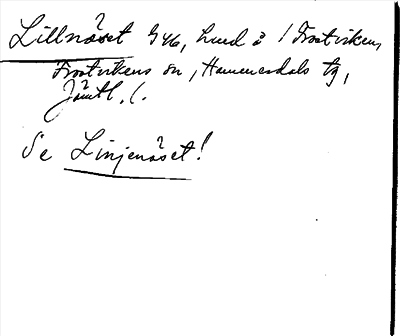 Lillnäset 946, hvud å 1 Frostviken,
Frostvikens sn, Hammerdals tg,
Jämtl. l.
Se Linjenäset!